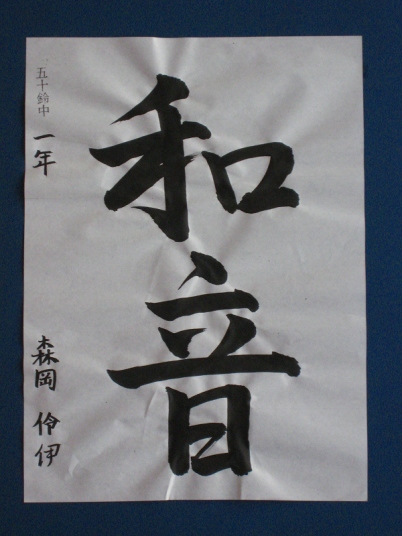 和音
五十鈴中
一年
森岡 伶伊